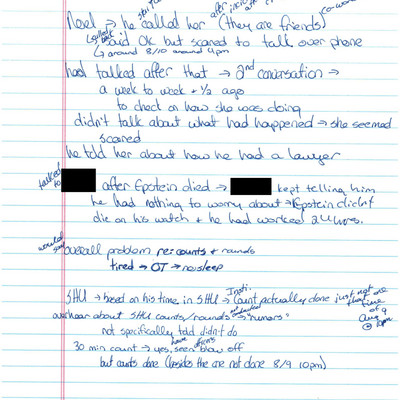 Noel → he called her (they are friends) co-wor
called back said OK but scared to talk over phone
↳ around 8/10 around 9pm
had talked after that → 2nd conversation →
a week to week + 1/2 ago
to check on how she was doing
didn't talk about what had happened → she seemed
scared
he told her about how he had a lawyer
talked to after Epstein died → kept telling him
he had nothing to worry about → Epstein didn't
die on his watch + he had worked 24 hrs.
would say overall problem re: counts + rounds
tired → OT → no sleep
SHU → based on his time in SHU → Insti. count actually done just not one
that time of 9 Aug @ 10pm
overhear about SHU counts/rounds → "rumors"
not specifically told didn't do
30 min count → yes, have seen blow off
but counts done (besides the are not done 8/9 10pm)